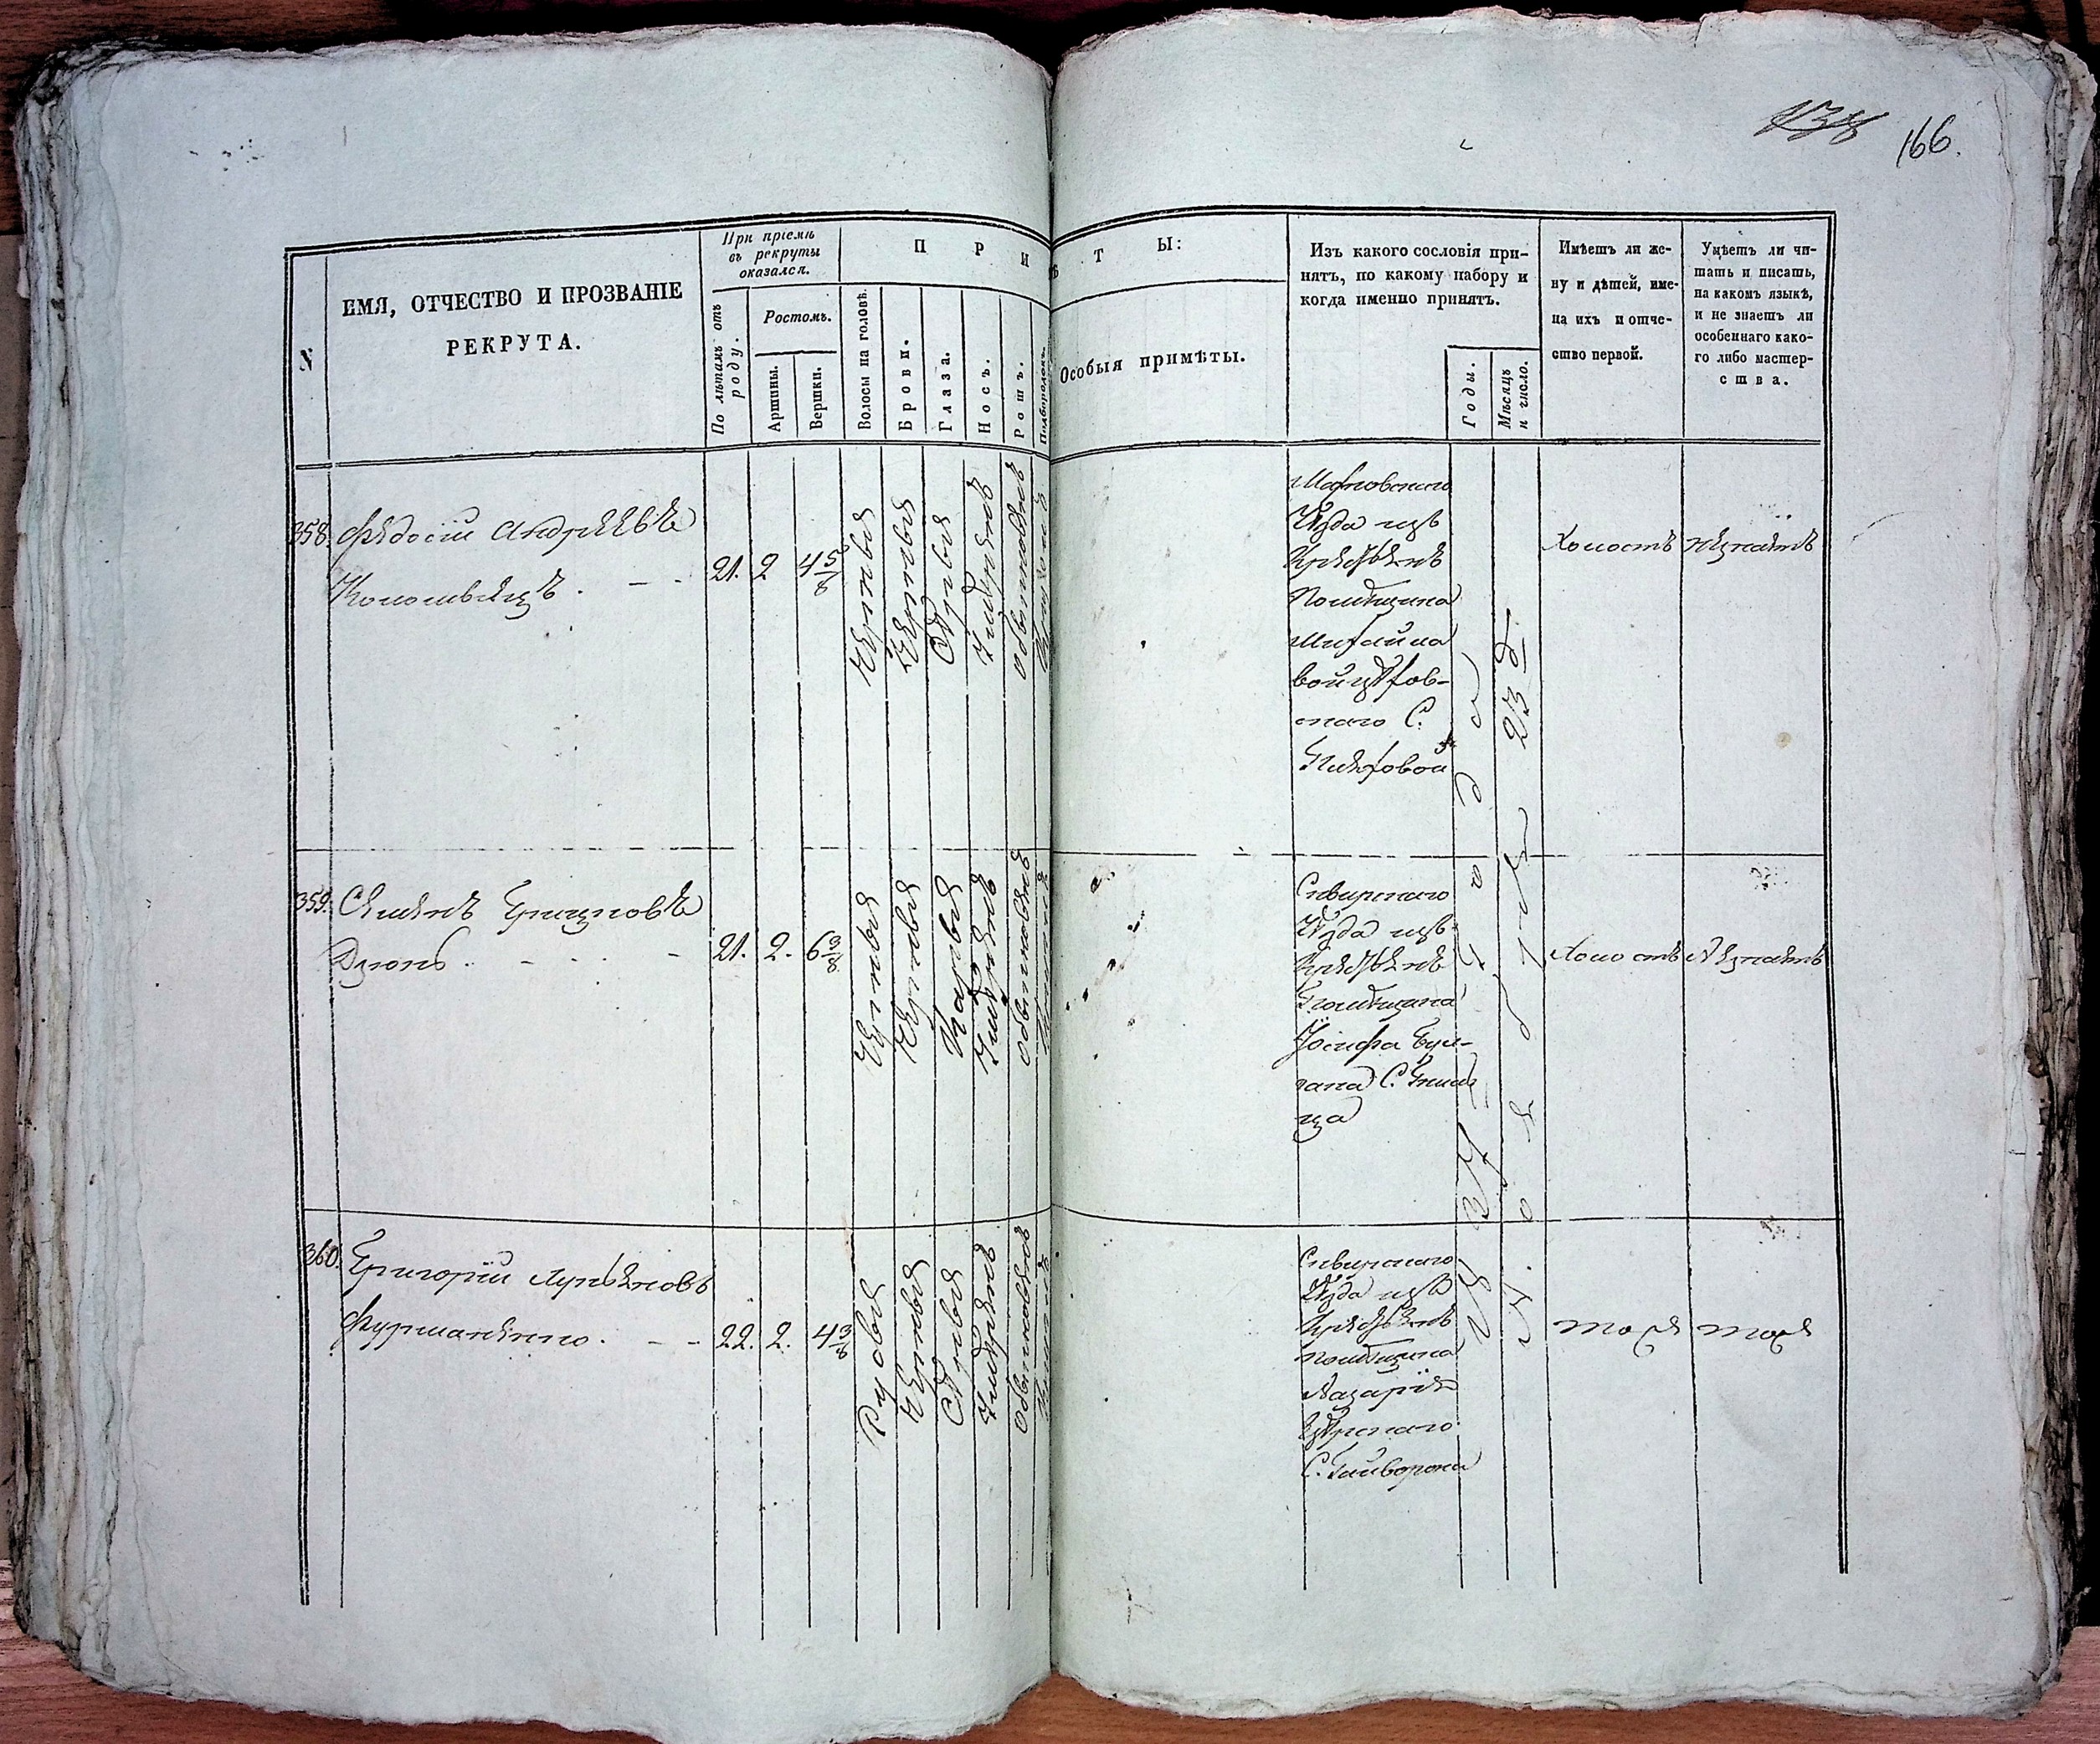 166.
N
ИМЯ, ОТЧЕСТВО И ПРОЗВАНІЕ
РЕКРУТА.
При пріемѣ
въ рекруты
оказался.
По лѣтамъ отъ
роду.
Ростомъ.
Аршины.
Вершки.
П Р И
Волосы на головѣ.
Брови.
Глаза.
Носъ.
Ротъ.
Подбородокъ.
Т Ы:
Особыя примѣты.
Изъ какого сословія при-
нятъ, по какому набору и
когда именно принятъ.
Годы.
Мѣсяцъ
и число.
Имѣетъ ли же-
ну и дѣтей, име-
на ихъ и отче-
ство первой.
Умѣетъ ли чи-
тать и писать,
на какомъ языкѣ,
и не знаетъ ли
особеннаго како-
го либо мастер-
ства.
358.
Федосій Андреевъ
Коломѣецъ
21.
2
4 5/8
Черныя
Черныя
Сѣрыя
Умѣренъ
обыкновенъ
уѣзда изъ
крестьянъ
Помѣщика
Михаила
войцѣхов-
скаго С.
Холостъ
незнаетъ
359.
Семенъ
21.
2.
6 3/8
Черныя
Черныя
Карыя
Умѣренъ
обыкновенъ
Сквирскаго
уѣзда изъ
крестьянъ
Помѣщика
Іосифа
Холостъ
Незнаетъ
360.
Григорій Лукьяновъ
Фурманенко.
22.
2.
4 3/8
Русыя
Черныя
Сѣрыя
Умѣренъ
обыкновенъ
Сквирскаго
уѣзда изъ
крестьянъ
помѣщика
Лазарія
С. Гайворона
тоже
тоже